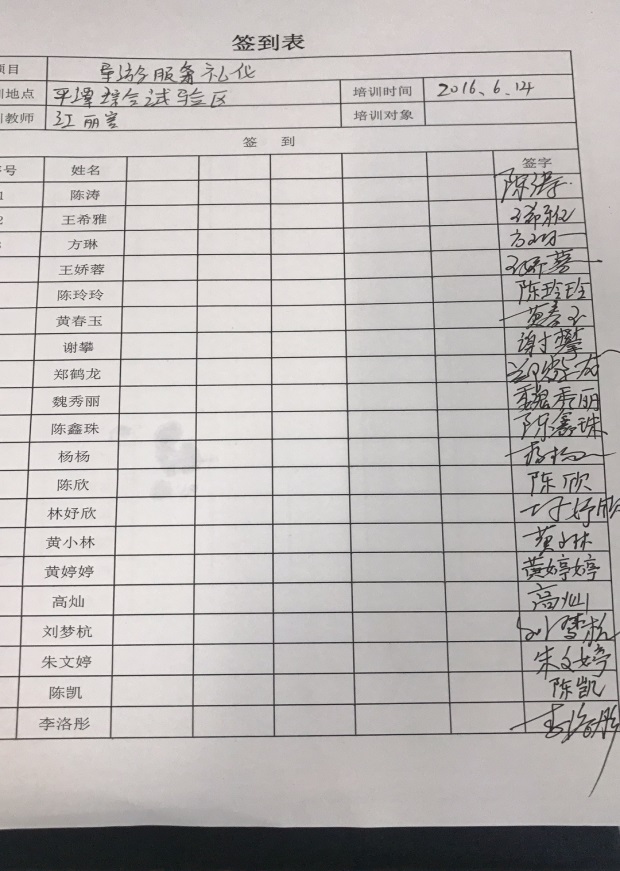 签到表
项目 导游服务礼仪
训地点 平潭综合试验区 培训时间 2016、6.14
训教师 江丽 培训对象
签 到
序号 姓名 签字
1 陈涛 陈涛
2 王希雅 王希雅
3 方琳 方琳
王娇蓉 王娇蓉
陈玲玲 陈玲玲
黄春玉 黄春玉
谢攀 谢攀
郑鹤龙
魏秀丽 魏秀丽
陈鑫珠 陈鑫珠
杨杨 杨杨
陈欣 陈欣
林妤欣 林妤欣
黄小林 黄小林
黄婷婷 黄婷婷
高灿 高灿
刘梦杭 刘梦杭
朱文婷 朱文婷
陈凯 陈凯
李洛彤 李洛彤